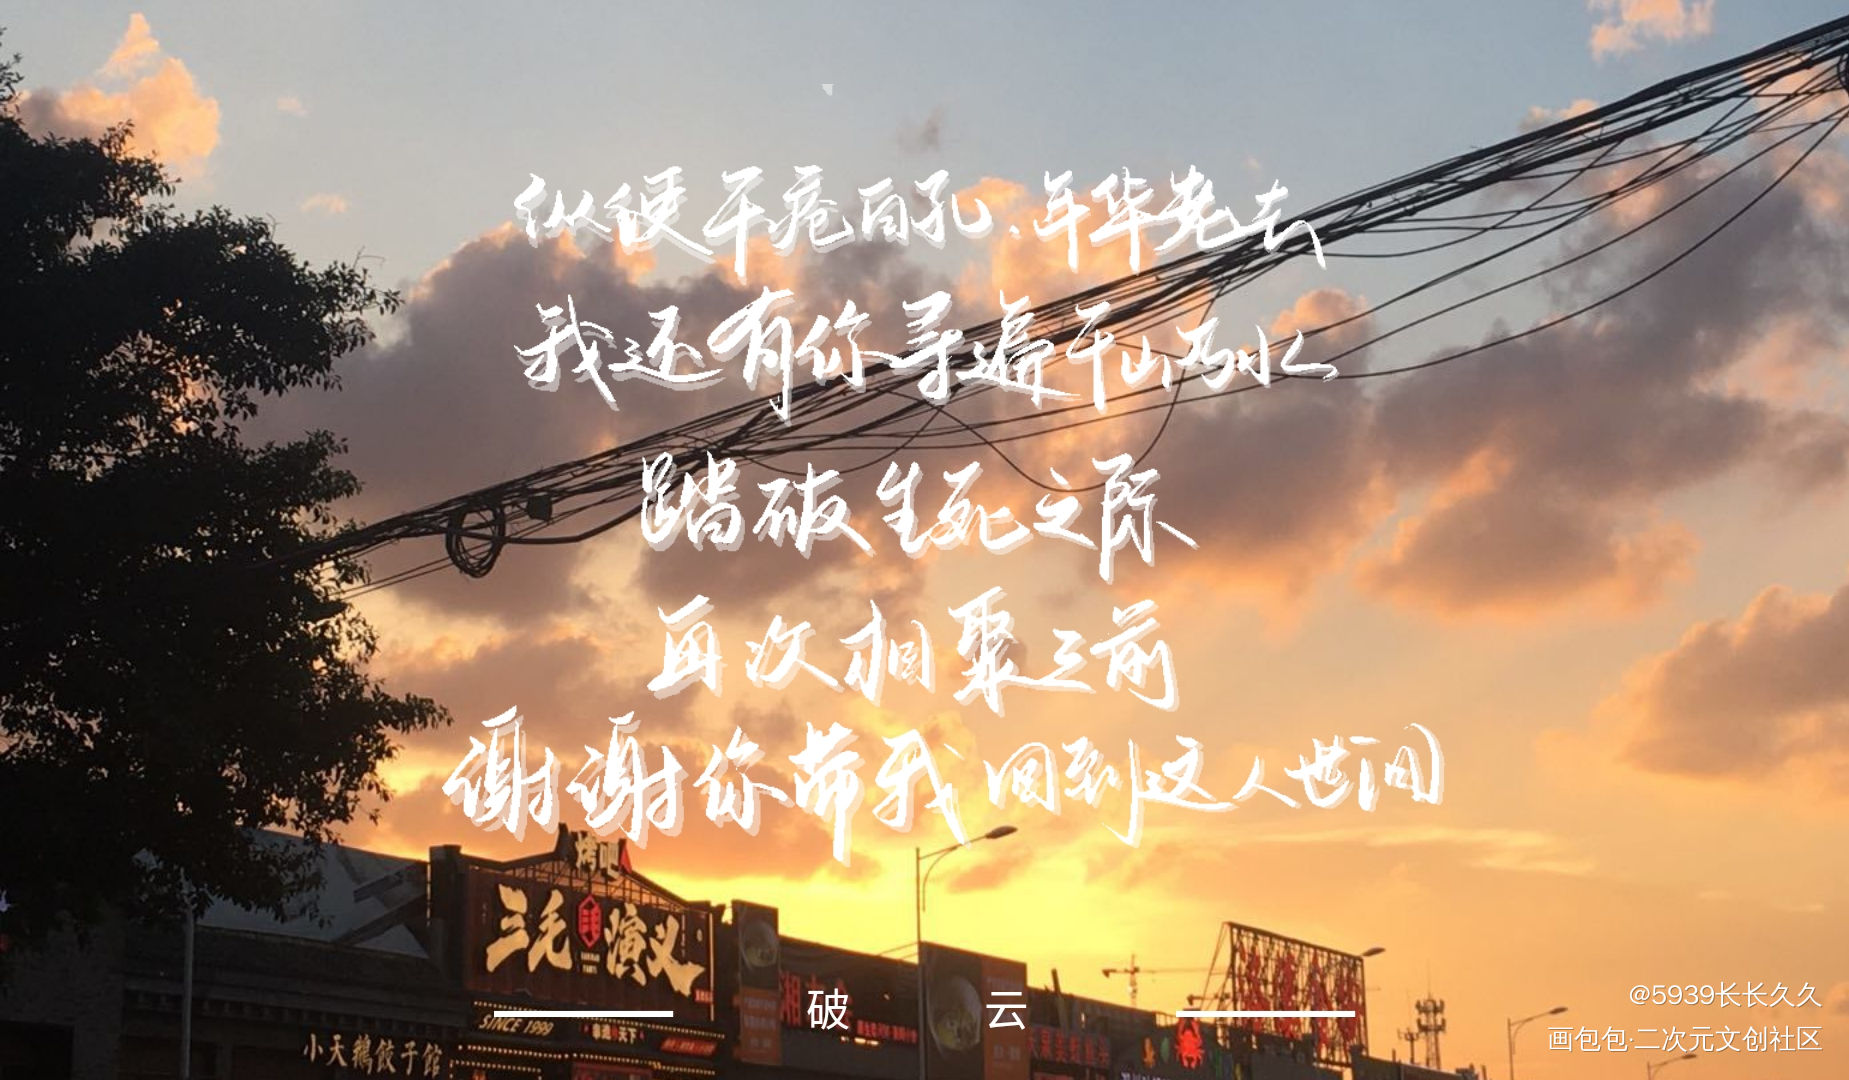 纵使千疮百孔、年华老去
我还有你寻遍千山万水
踏破生死之际
再次相聚之前
谢谢你带我回到这人世间
烤吧
三毛演义
SINCE 1999
小天鹅饺子馆
破 云
@5939长长久久
画包包·二次元文创社区